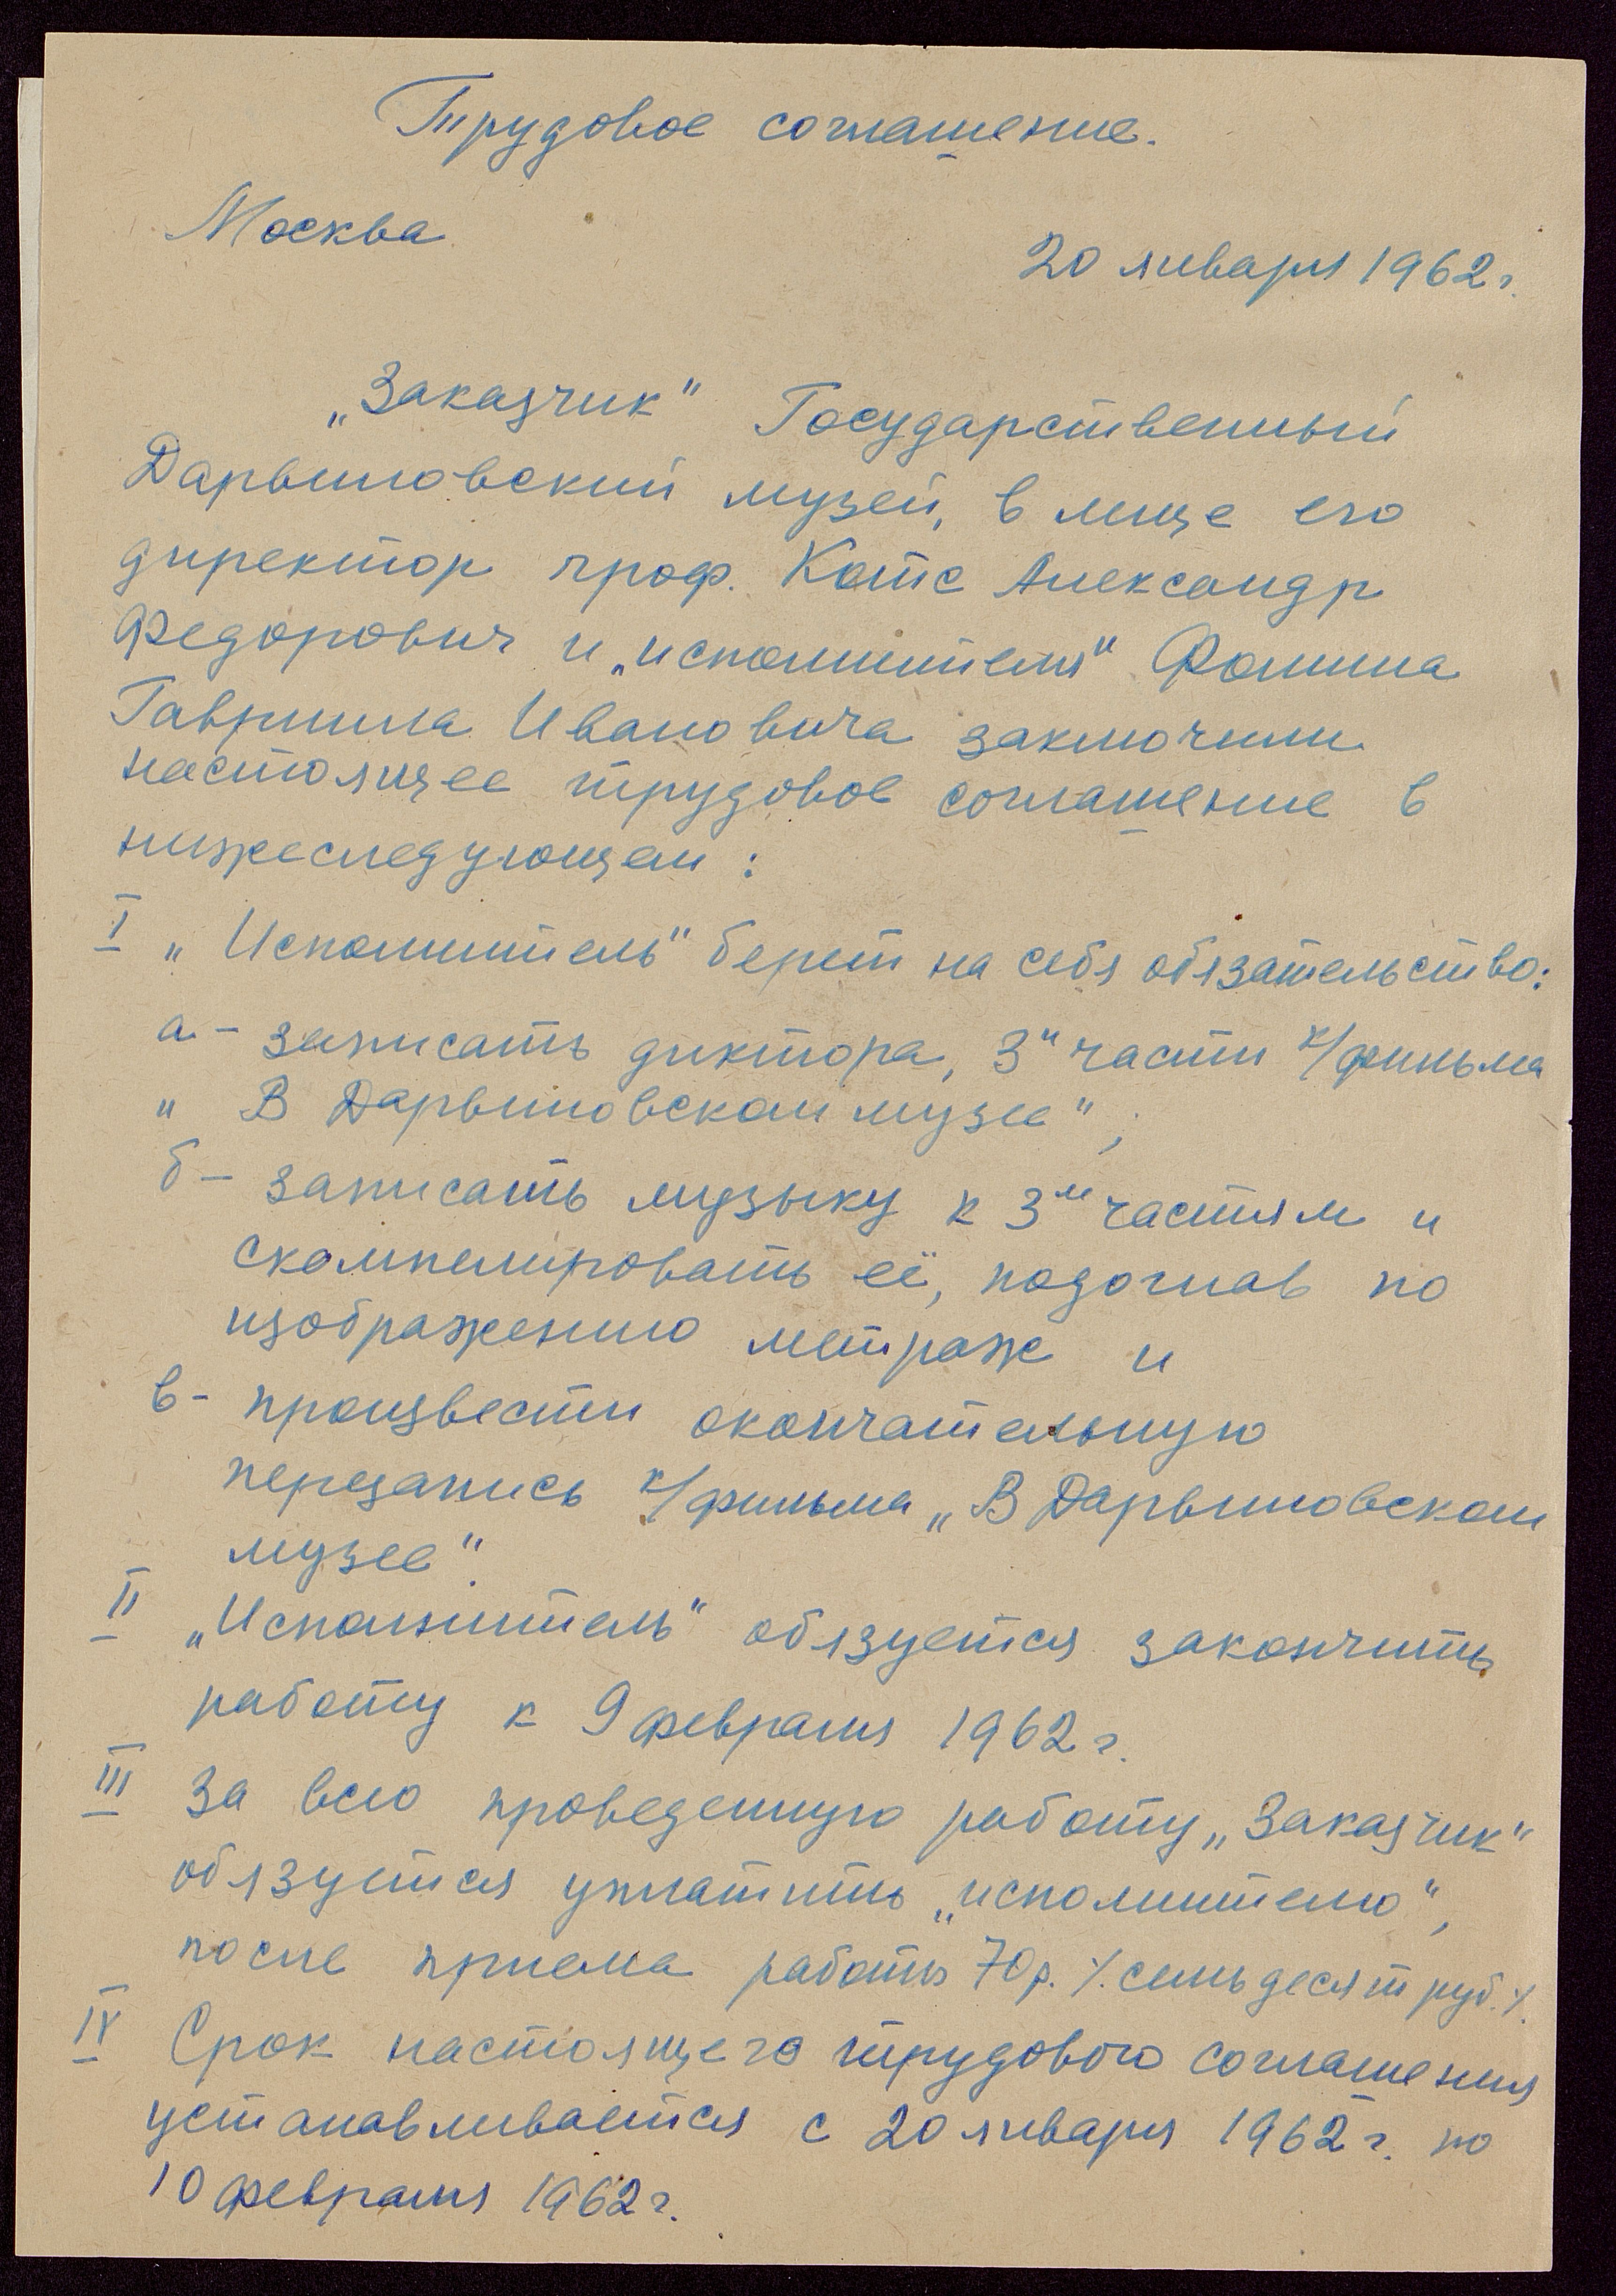 Трудовое соглашение.
Москва
20 января 1962 г.
„Заказчик" Государственный
Дарвиновский музей, в лице его
директор проф. Котс Александр
Федорович и „исполнителя" Фомина
Гавриила Ивановича заключили
настоящее трудовое соглашение в
нижеследующем:
I „Исполнитель" берет на себя обязательство:
а - записать диктора, 3х части к/фильма
„В Дарвиновском музее";
б - записать музыку к 3м частям и
скомпелировать её, подогнав по
изображению метраж и
в - произвести окончательную
перезапись к/фильма „В Дарвиновском
музее".
II „Исполнитель" обязуется закончить
работу к 9 февраля 1962 г.
III За всю проведенную работу „Заказчик"
обязуется уплатить „исполнителю",
после приема работы 70 р. /. семьдесят руб. /.
IV Срок настоящего трудового соглашения
устанавливается с 20 января 1962 г. по
10 февраля 1962 г.